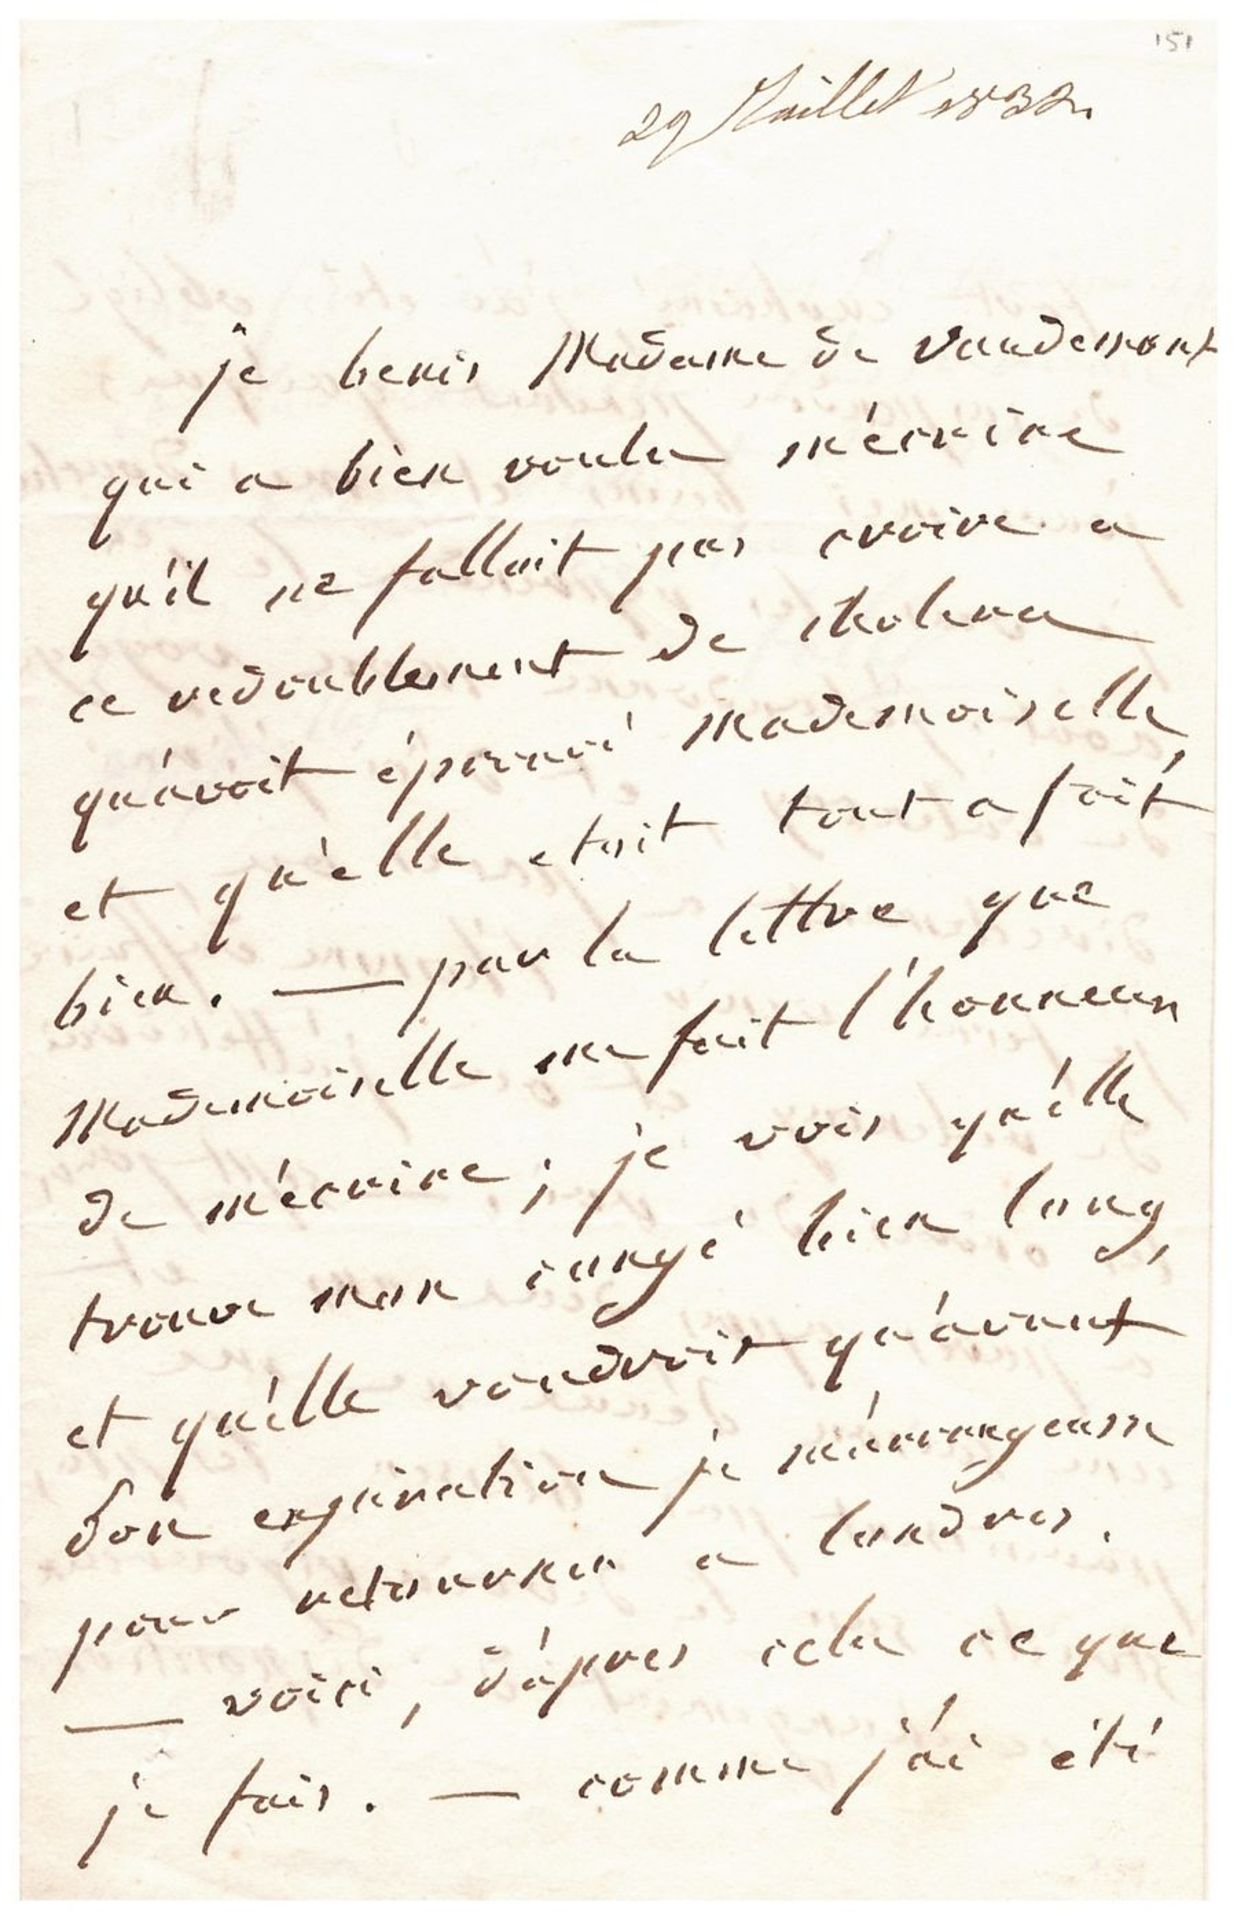 151
29 Juillet 1832.
je benis Madame de Vaudemont
qui a bien voulu m'écrire
qu'il ne falloit pas croire a
ce redoublement de cholera
qu'avoit éprouvé mademoiselle,
et qu'elle etoit tout a fait
bien. — par la lettre que
Mademoiselle me fait l'honneur
de m'écrire; je vois qu'elle
trouve mon congé bien long,
et qu'elle voudroit qu'avant
son expiration je m'arrangeasse
pour retourner a londres.
— voici, d'apres cela ce que
je fais. — comme j'ai été